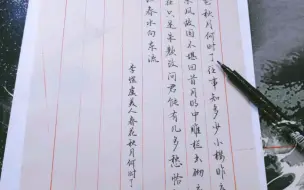 秋月何时了往事知多少小楼昨
东风故国不堪回首月明中雕栏玉砌
在只是朱颜改问君能有几多愁恰
春水向东流
李煜虞美人春花秋月何时了